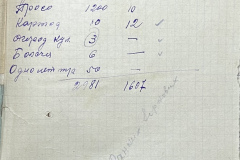 Просо 1200 10
Картоф 10 12
Огород. кул. 3 —
Бахчи 6 —
Однолет тра 50 —
2981 1607